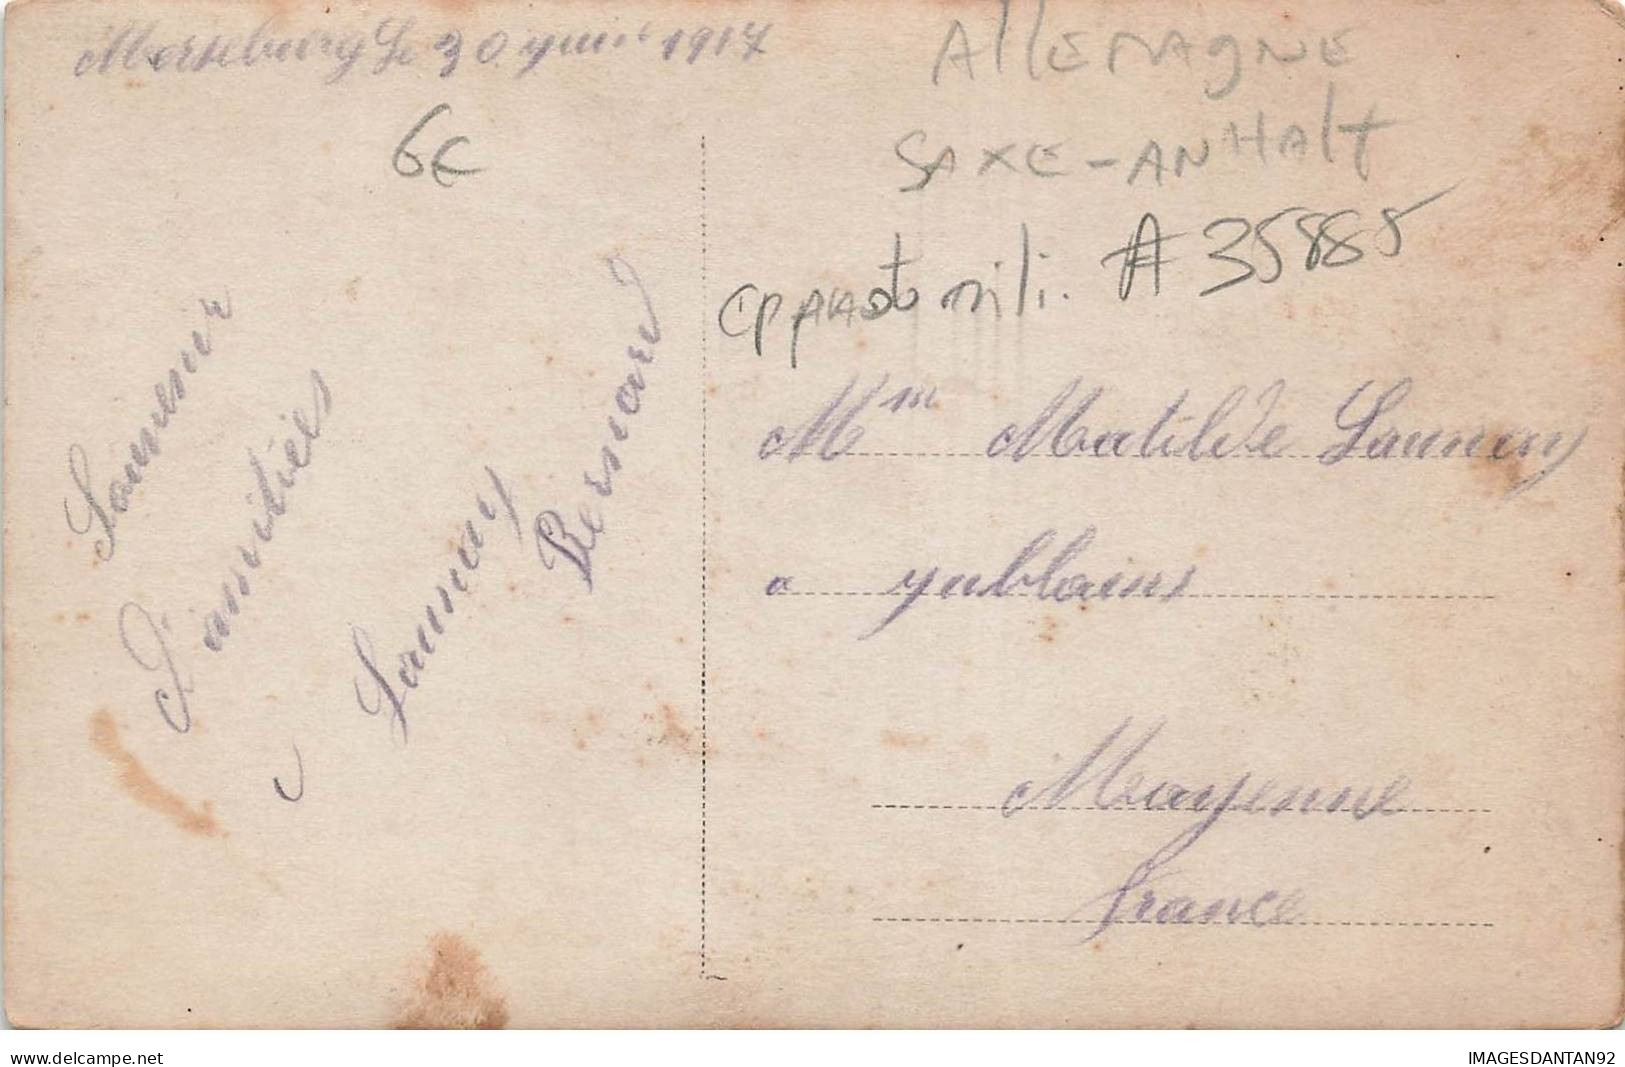 Merseburg le 30 yuin 1917
Allemagne
6€
Saxe-Anhalt
CP photo mili. #35885
Souvenir
D'amitiés
Launay
Bernard
Mme Matilde Launay
a yublains
Mayenne
France
delcampe.net
IMAGESDANTAN92